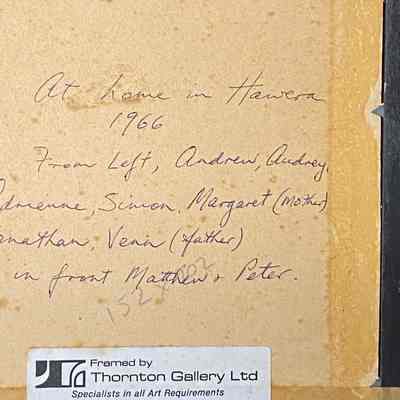 At home in Hawera
1966
From Left, Andrew, Audrey,
Adrienne, Simon, Margaret (Mother)
Jonathan, Venn (father)
in front Matthew & Peter.
Framed by
Thornton Gallery Ltd
Specialists in all Art Requirements